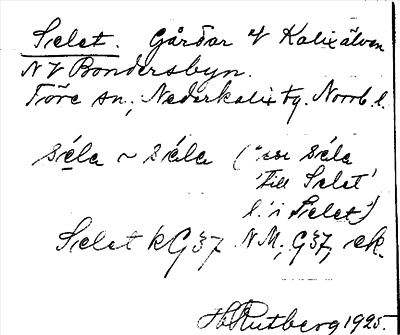 Selet. Gårdar V Kalixälven
NV Bondersbyn.
Töre sn, Nederkalix tg. Norrb. l.
séla ~ séla (
séla
'till Selet'
l. 'i Selet')
Selet k G37 N.M., G37, ek.
H Rutberg 1925.